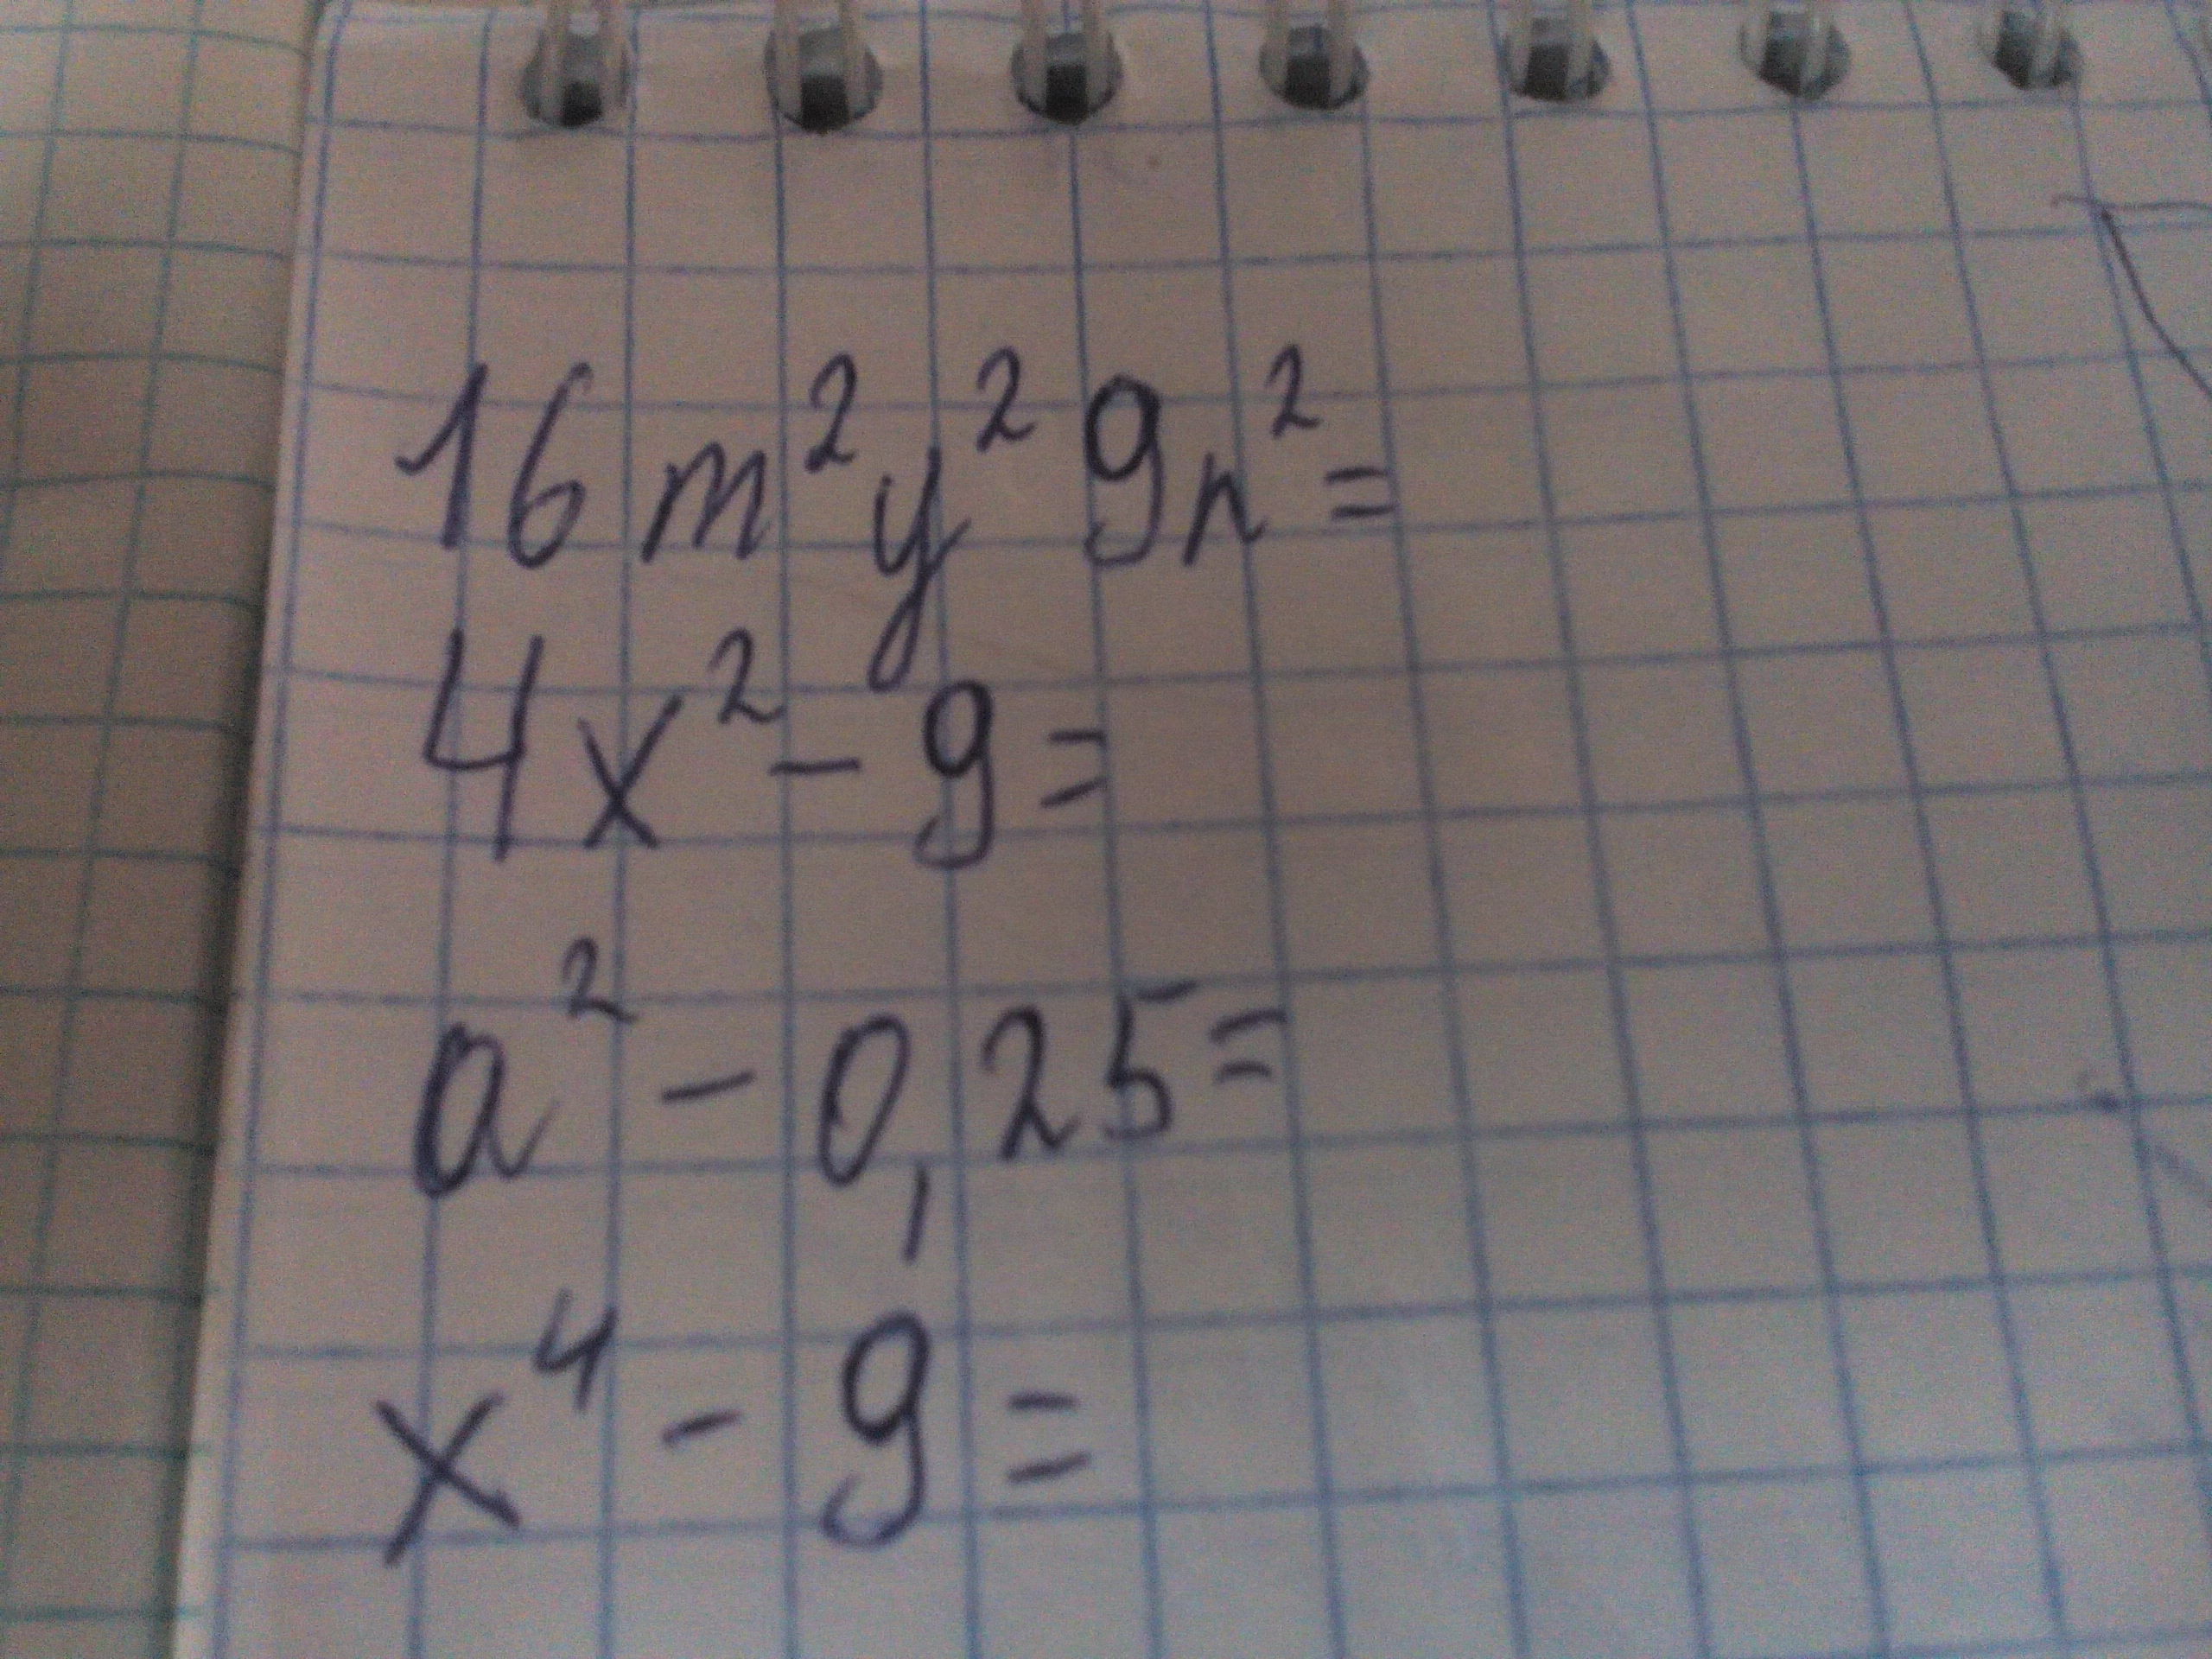 16m²y²9n²=
4x²-9=
a²-0,25=
x⁴-9=